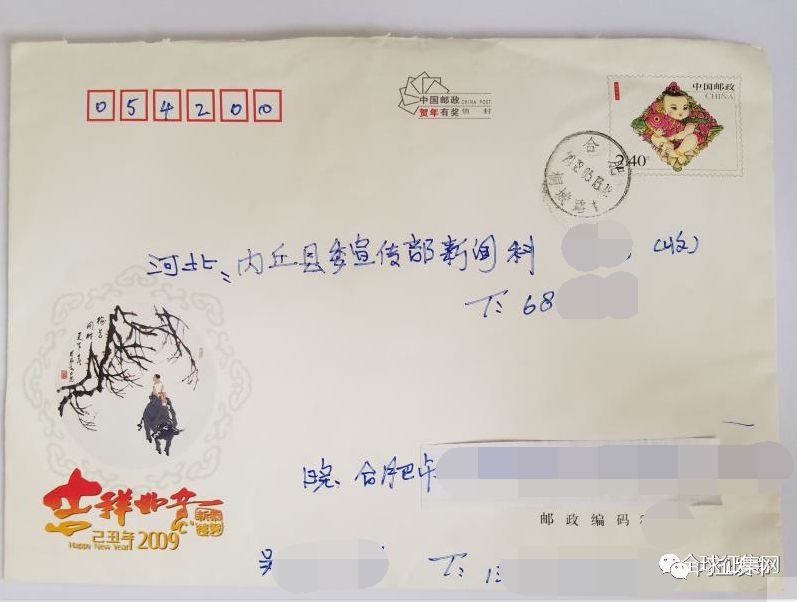 054200
中国邮政 CHINA POST
贺年有奖 信封
中国邮政
CHINA
2.40
合肥
河北: 内丘县委宣传部新闻科 (收)
T: 68
皖. 合肥市
邮政编码:
吴
T: 13
吉祥如意
新春祝贺
己丑年 2009
Happy New Year!
全球征集网